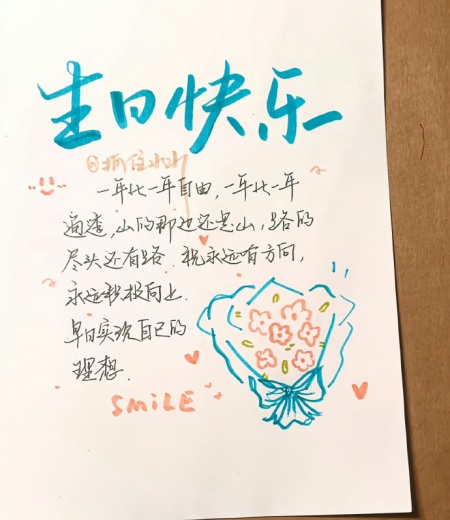 生日快乐
@抓住小小
一年比一年自由,一年比一年
通透,山的那边还是山,路的
尽头还有路.祝永远有方向,
永远积极向上.
早日实现自己的
理想.
SMiLE